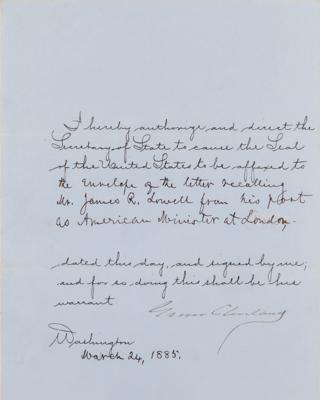 I hereby authorize and direct the
Secretary of State to cause the Seal
of the United States to be affixed to
the Envelope of the letter recalling
Mr. James R. Lowell from his post
as American Minister at London,
dated this day, and signed by me;
and for so doing this shall be his
warrant.
Grover Cleveland
Washington
March 24, 1885.